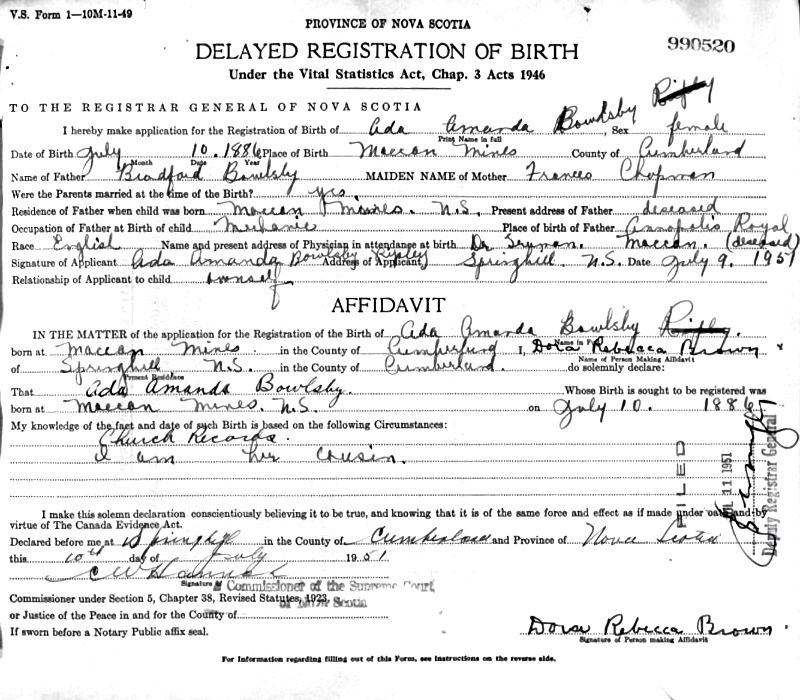 V.S. Form 1—10M-11-49
PROVINCE OF NOVA SCOTIA
DELAYED REGISTRATION OF BIRTH
990520
Under the Vital Statistics Act, Chap. 3 Acts 1946
TO THE REGISTRAR GENERAL OF NOVA SCOTIA
I hereby make application for the Registration of Birth of Ada Amanda Bowlsby Ripley Sex female
Print Name in full
Date of Birth July 10. 1886 Place of Birth Maccan Mines County of Cumberland
Month Date Year
Name of Father Bradford Bowlsby MAIDEN NAME of Mother Frances Chapman
Were the Parents married at the time of the Birth? yes.
Residence of Father when child was born Maccan Mines. N.S. Present address of Father deseased
Occupation of Father at Birth of child Mechanic Place of birth of Father Annopolis Royal
Race English Name and present address of Physician in attendance at birth Dr Maccan. (deseased)
Signature of Applicant Ada Amanda Bowlsby Ripley Address of Applicant Springhill N.S. Date July 9. 1951
Relationship of Applicant to child
AFFIDAVIT
IN THE MATTER of the application for the Registration of the Birth of Ada Amanda Bowlsby Ripley.
born at Maccan Mines in the County of Cumberland I, Dora Rebecca Brown
Name of Person Making Affidavit
of Springhill N.S. in the County of Cumberland. do solemnly declare:
Present Residence
That Ada Amanda Bowlsby. Whose Birth is sought to be registered was
born at Maccan Mines. N.S. on July 10. 1886
My knowledge of the fact and date of such Birth is based on the following Circumstances:
Church Records.
I am her cousin.
FILED
JUL 11 1951
Deputy Registrar General
I make this solemn declaration conscientiously believing it to be true, and knowing that it is of the same force and effect as if made under oath and by
virtue of The Canada Evidence Act.
Declared before me at Springhill in the County of Cumberland and Province of Nova Scotia
this 10th day of July 1951
Signature
A Commissioner of the Supreme Court
of Nova Scotia
Commissioner under Section 5, Chapter 38, Revised Statutes, 1923.
or Justice of the Peace in and for the County of
If sworn before a Notary Public affix seal.
Dora Rebecca Brown
Signature of Person making Affidavit
For Information regarding filling out of this Form, see instructions on the reverse side.